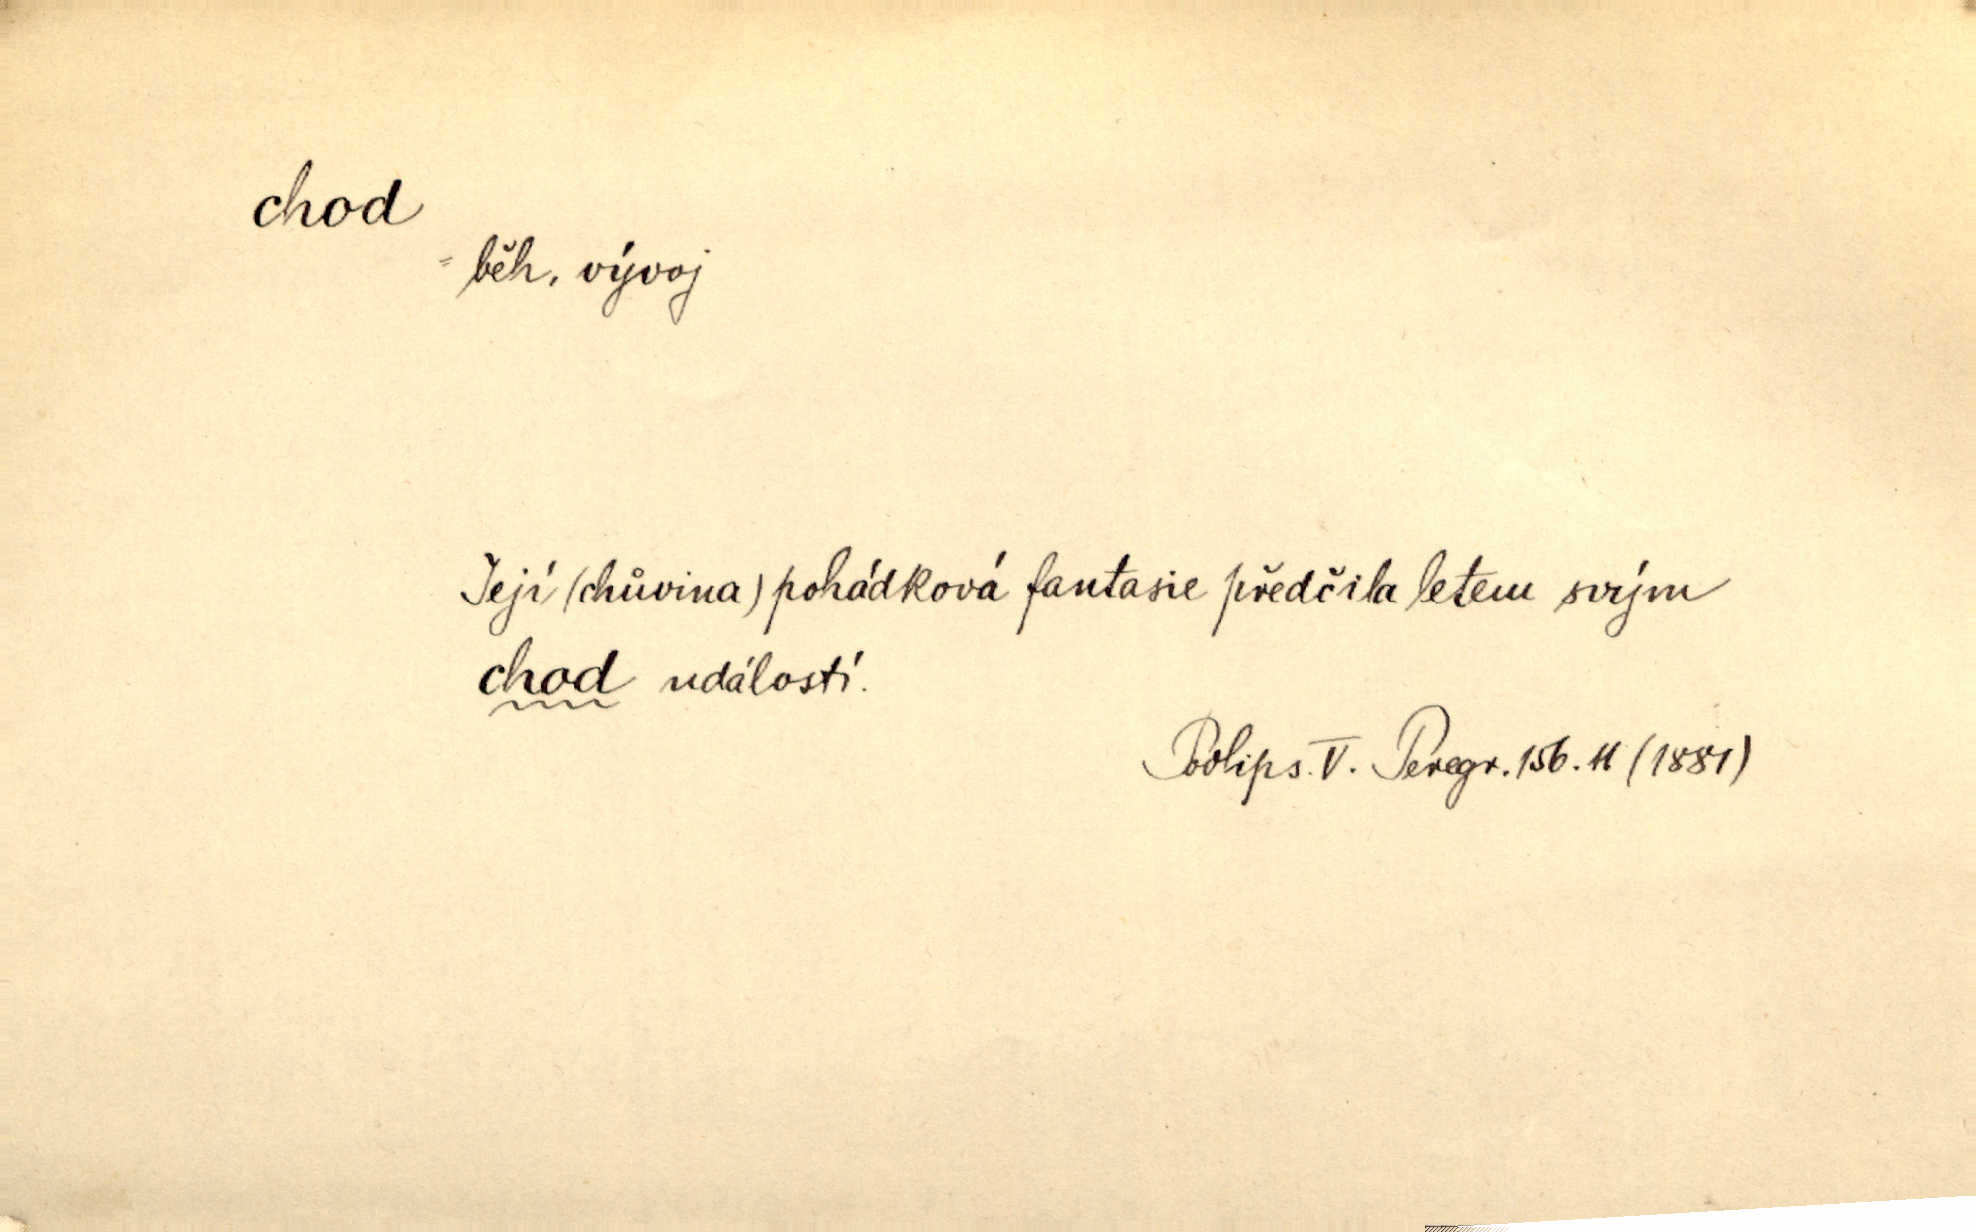 chod
= běh, vývoj
Její (chůvina) pohádková fantasie předčila letem svým
chod událostí.
Podlips. V. Peregr. 156. 11 (1881)